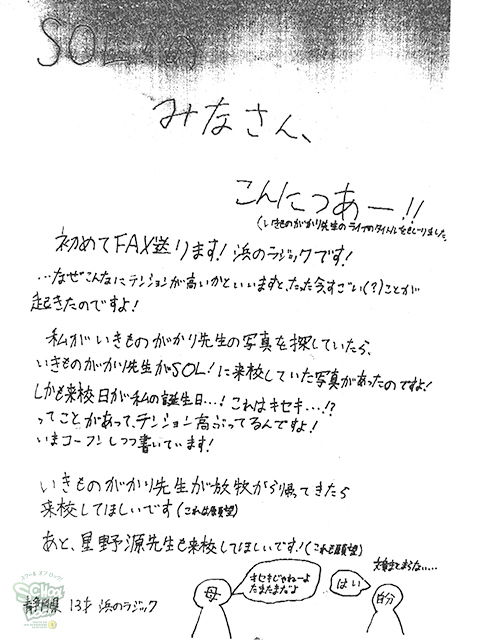 SOL!の
みなさん、
こんにつあー!!
(いきものがかり先生のライブのタイトルをもじりました
初めてFAX送ります!浜のラジックです!
…なぜこんなにテンションが高いかといいますと、たった今すごい(?)ことが
起きたのですよ!
私がいきものがかり先生の写真を探していたら、
いきものがかり先生がSOL!に来校していた写真があったのですよ!
しかも来校日が私の誕生日…!これはキセキ…!?
ってことがあって、テンション高ぶってるんですよ!
いまコーフンしつつ書いています!
いきものがかり先生が放牧から帰ってきたら
来校してほしいです(これは願望)
あと、星野源先生も来校してほしいです!(これも願望)
キセキじゃねーよ
たまたまだよ
母
はい
自分
静岡県 13才 浜のラジック
スクール オブ ロック!
SCHOOL OF LOCK!